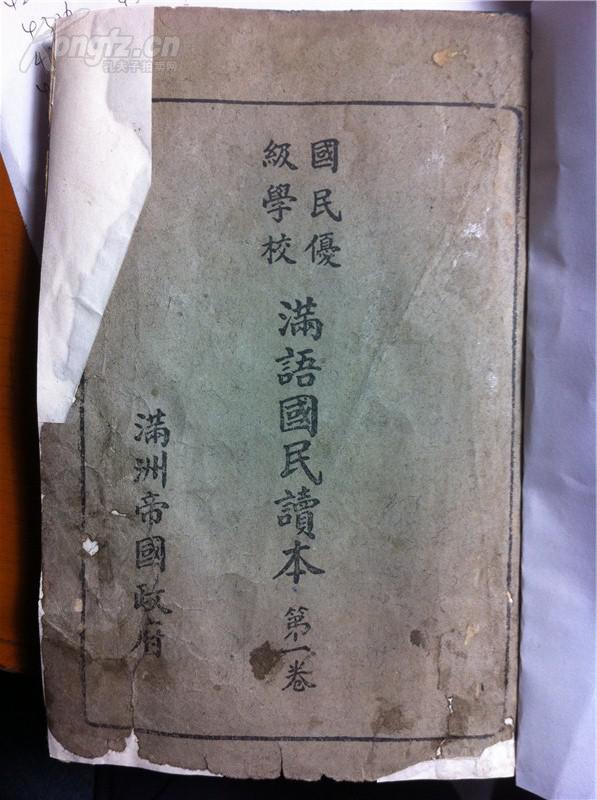 國民優
級學校
滿語國民讀本 第一卷
滿洲帝國政府
Kongfz.cn
孔夫子拍卖网